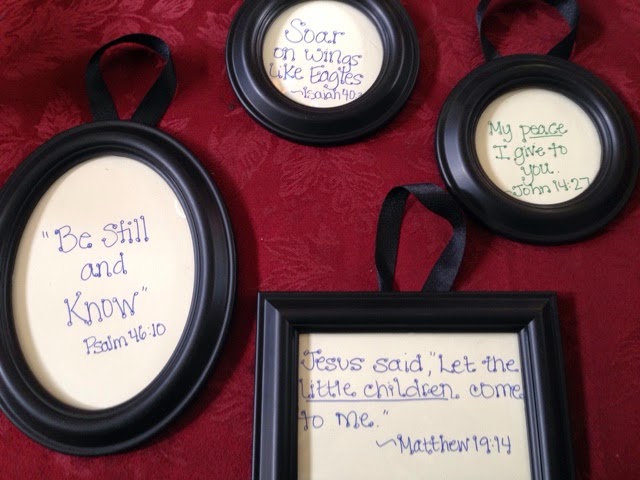 Soar
on wings
like Eagles
~Isaiah 40:
My peace
I give to
you.
~John 14:27
"Be Still
and
Know"
Psalm 46:10
Jesus said, "Let the
little children come
to me."
~Matthew 19:14